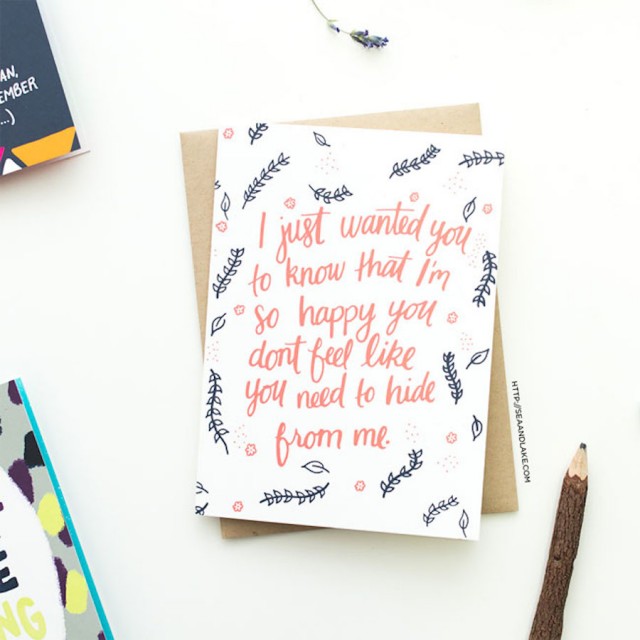 AN,
EMBER
...)
I just wanted you
to know that I'm
so happy you
dont feel like
you need to hide
from me.
HTTP://SEAANDLAKE.COM
E
NG